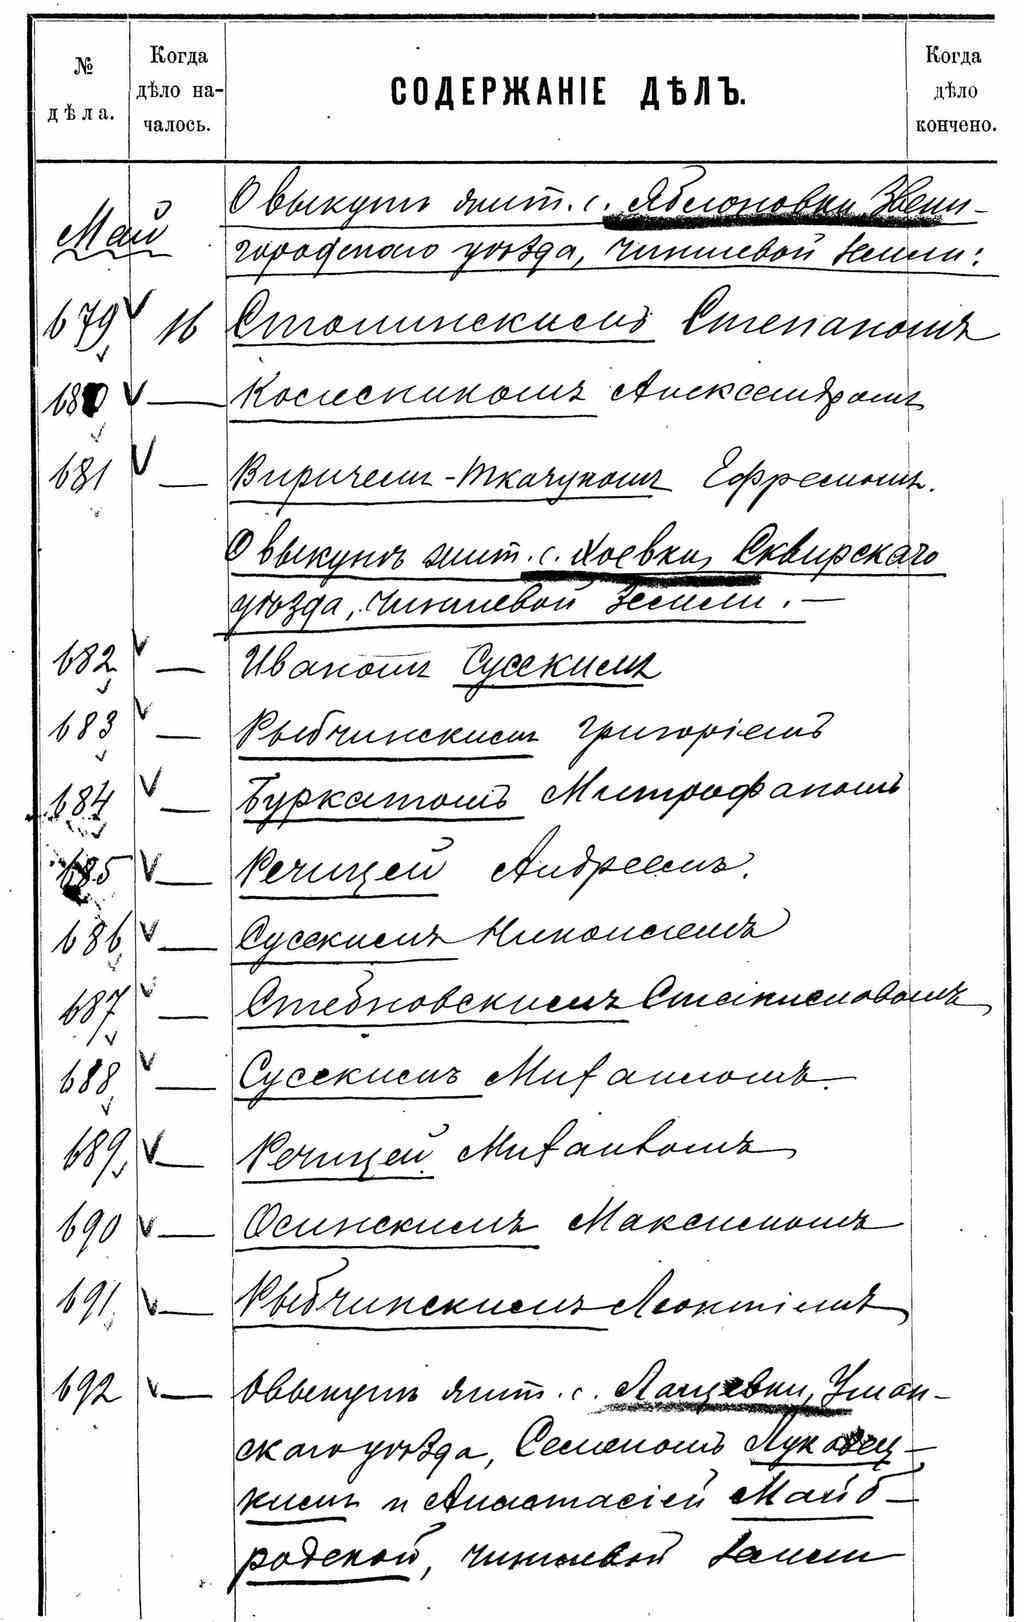 № дѣла.
Когда дѣло на-чалось.
СОДЕРЖАНІЕ ДѢЛЪ.
Когда дѣло кончено.
Май
О выкупѣ жит. с. Яблоновки, Звени-
городскаго уѣзда, чиншевой земли:
679 16 Столинскимъ Степаномъ
680 — Колесникомъ Александромъ
681 — Виричемъ-Ткачукомъ Ефремомъ.
О выкупѣ жит. с. Хоевки, Сквирскаго
уѣзда, чиншевой земли. —
682 — Иваномъ Сусскимъ
683 — Рыбчинскимъ Григоріемъ
684 — Буркатомъ Митрофаномъ
685 — Речицей Андреемъ.
686 — Сусскимъ Николаемъ
687 — Стебновскимъ Станиславомъ
688 — Сусскимъ Михаиломъ.
689 — Речицей Михаиломъ
690 — Осинскимъ Максимомъ
691 — Рыбчинскимъ Леонтіемъ
692 — О выкупѣ жит. с. Лащевки, Уман-
скаго уѣзда, Семеномъ Луковец-
кимъ и Анастасіей Майб-
родской, чиншевой земли